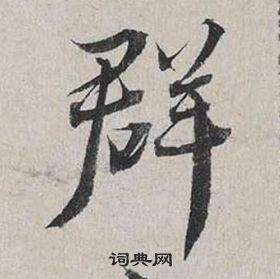 群
词典网